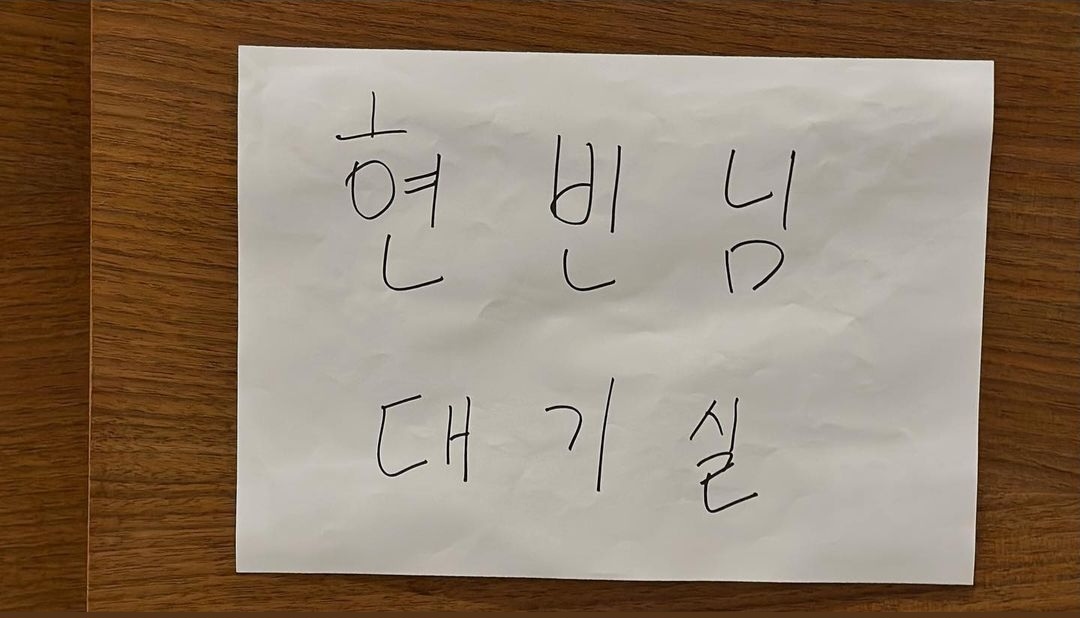 현빈님
대기실